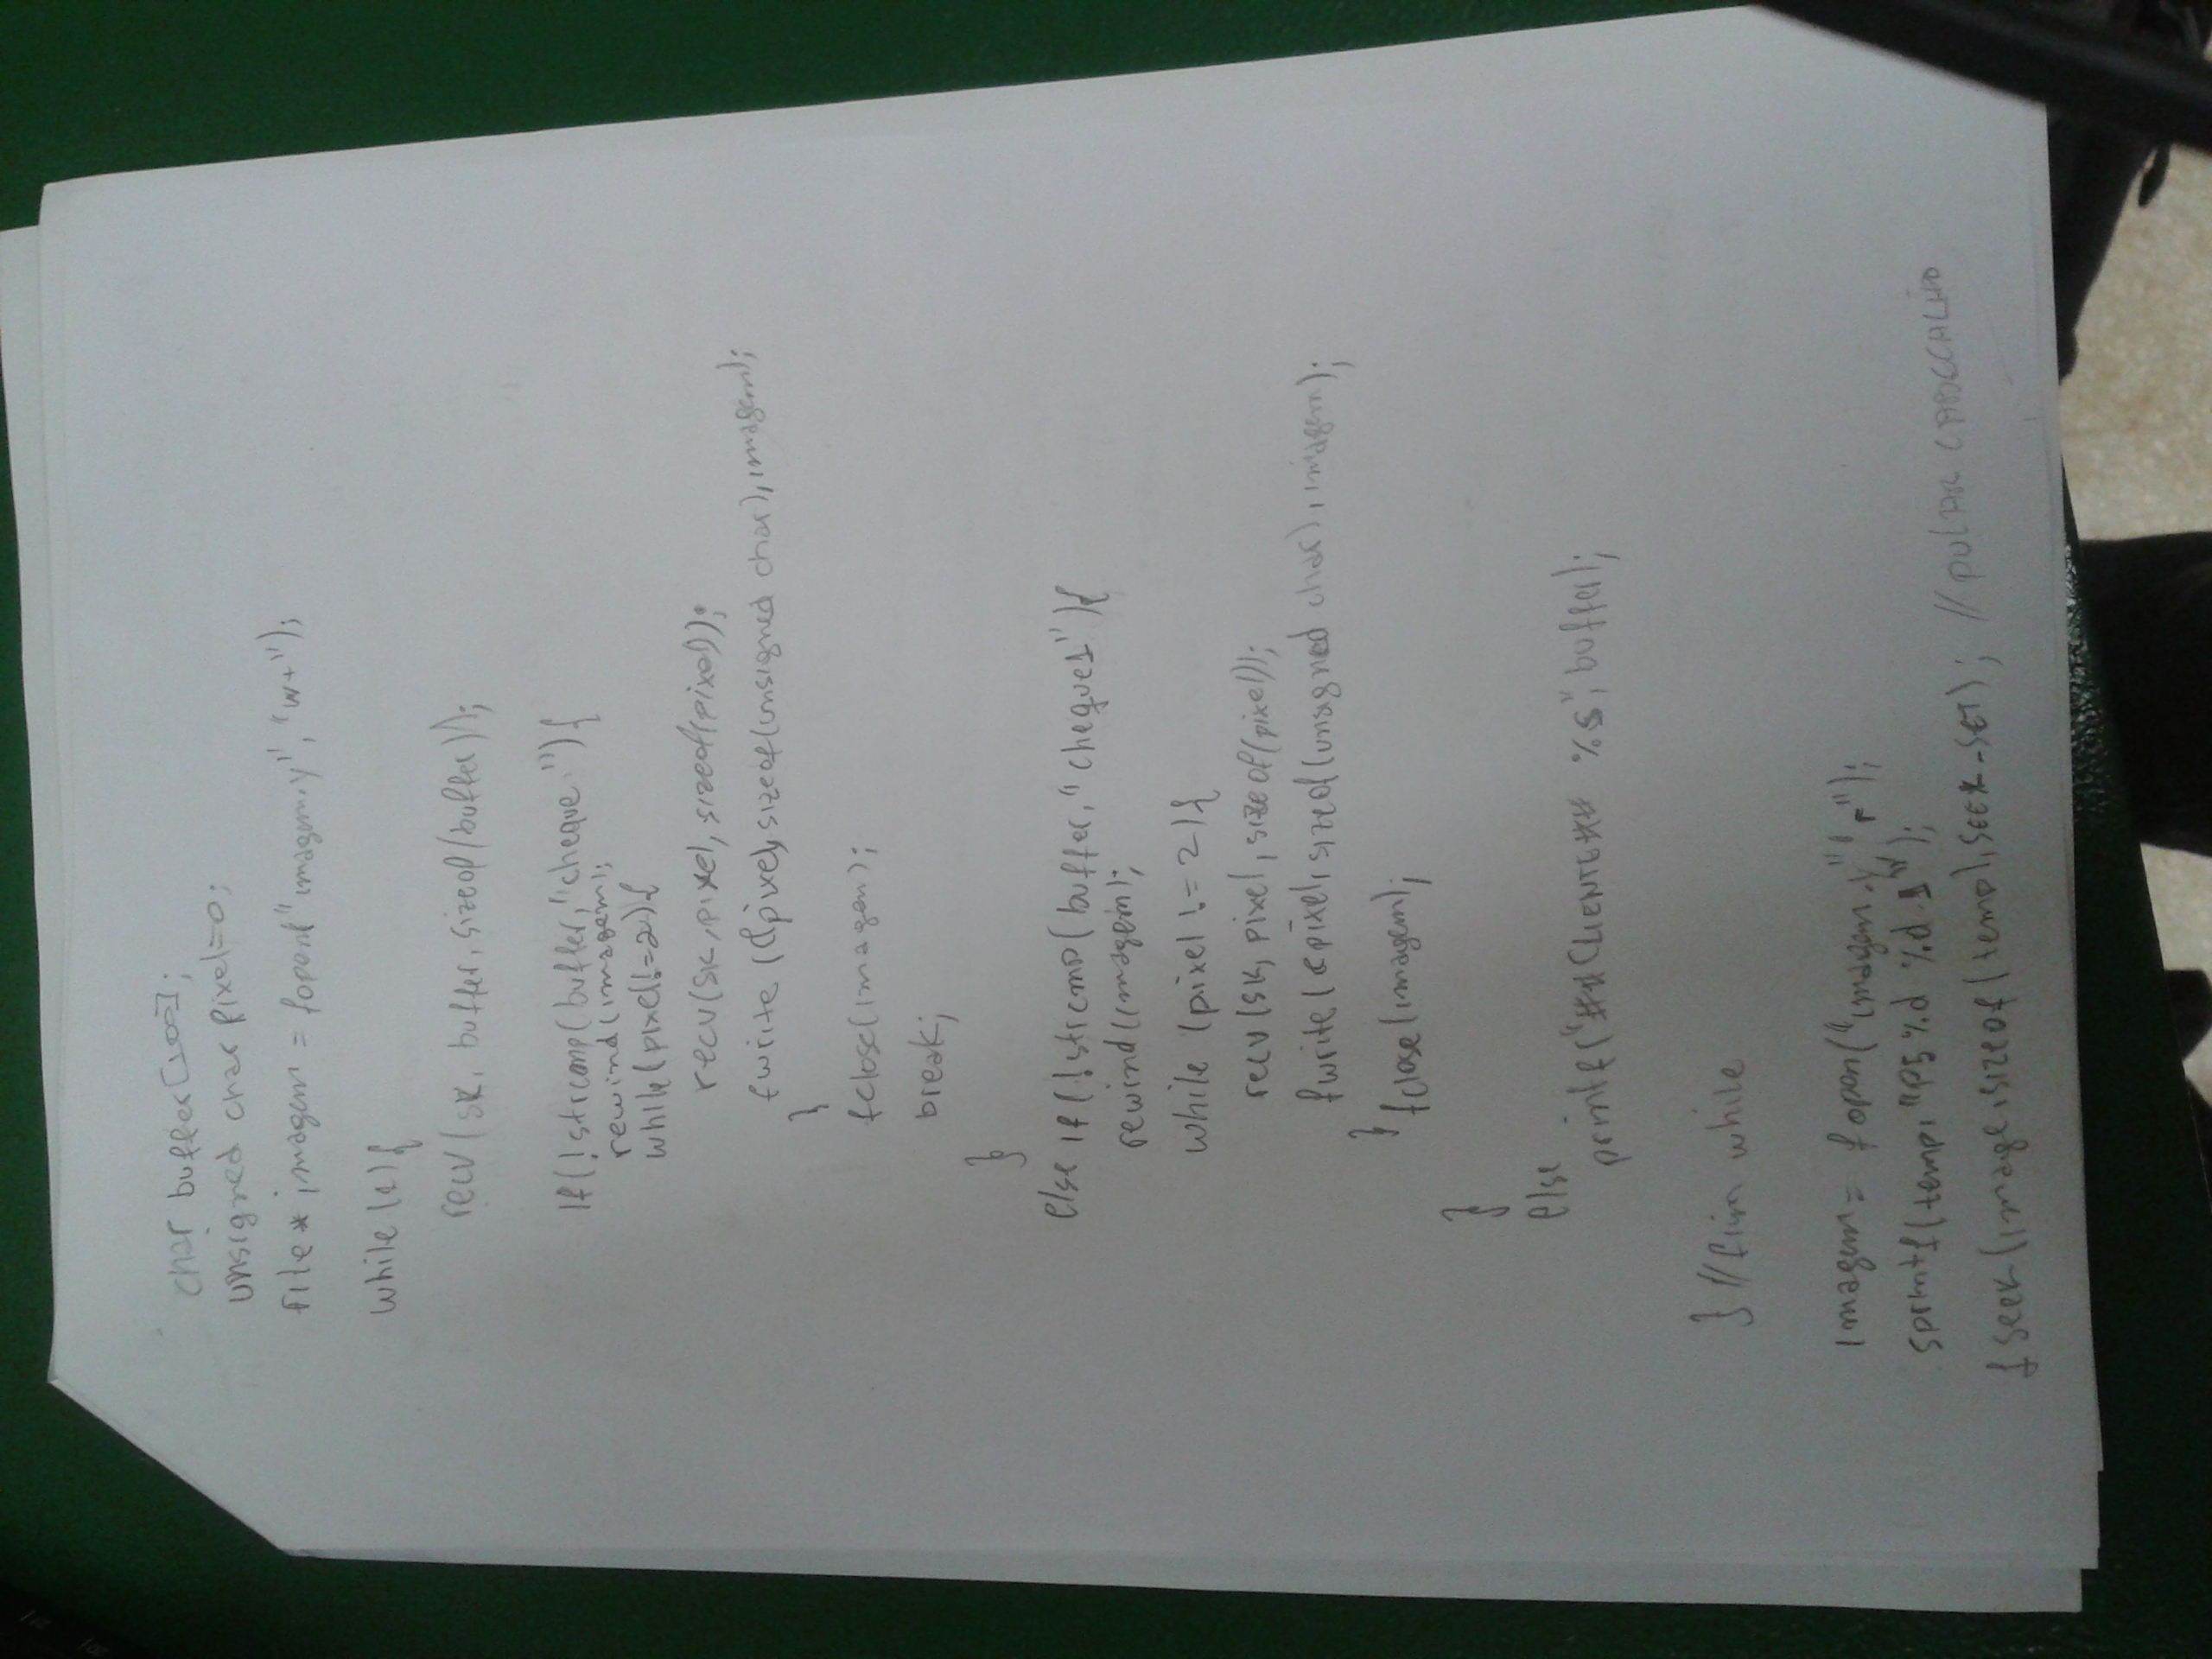 char buffer[100];
unsigned char pixel=0;
file* imagem = fopen("imagem.y","w+");
while(1){
recv(sk, buffer, sizeof(buffer));
if(!strcmp(buffer,"cheque")){
rewind(imagem);
while(pixel!=2){
recv(sk,pixel,sizeof(pixel));
fwrite(&pixel,sizeof(unsigned char),imagem);
}
fclose(imagem);
break;
}
else if(!strcmp(buffer,"cheque1"){
rewind(imagem);
while(pixel!=2){
recv(sk,pixel,sizeof(pixel));
fwrite(&pixel,sizeof(unsigned char),imagem);
}
fclose(imagem);
}
else
printf("##CLIENTE## %s",buffer);
} //fim while
imagem = fopen("imagem.y","r");
sprintf(temp,"P5 %d %d 1");
fseek(image,sizeof(temp),SEEK_SET); // pular CABECALHO